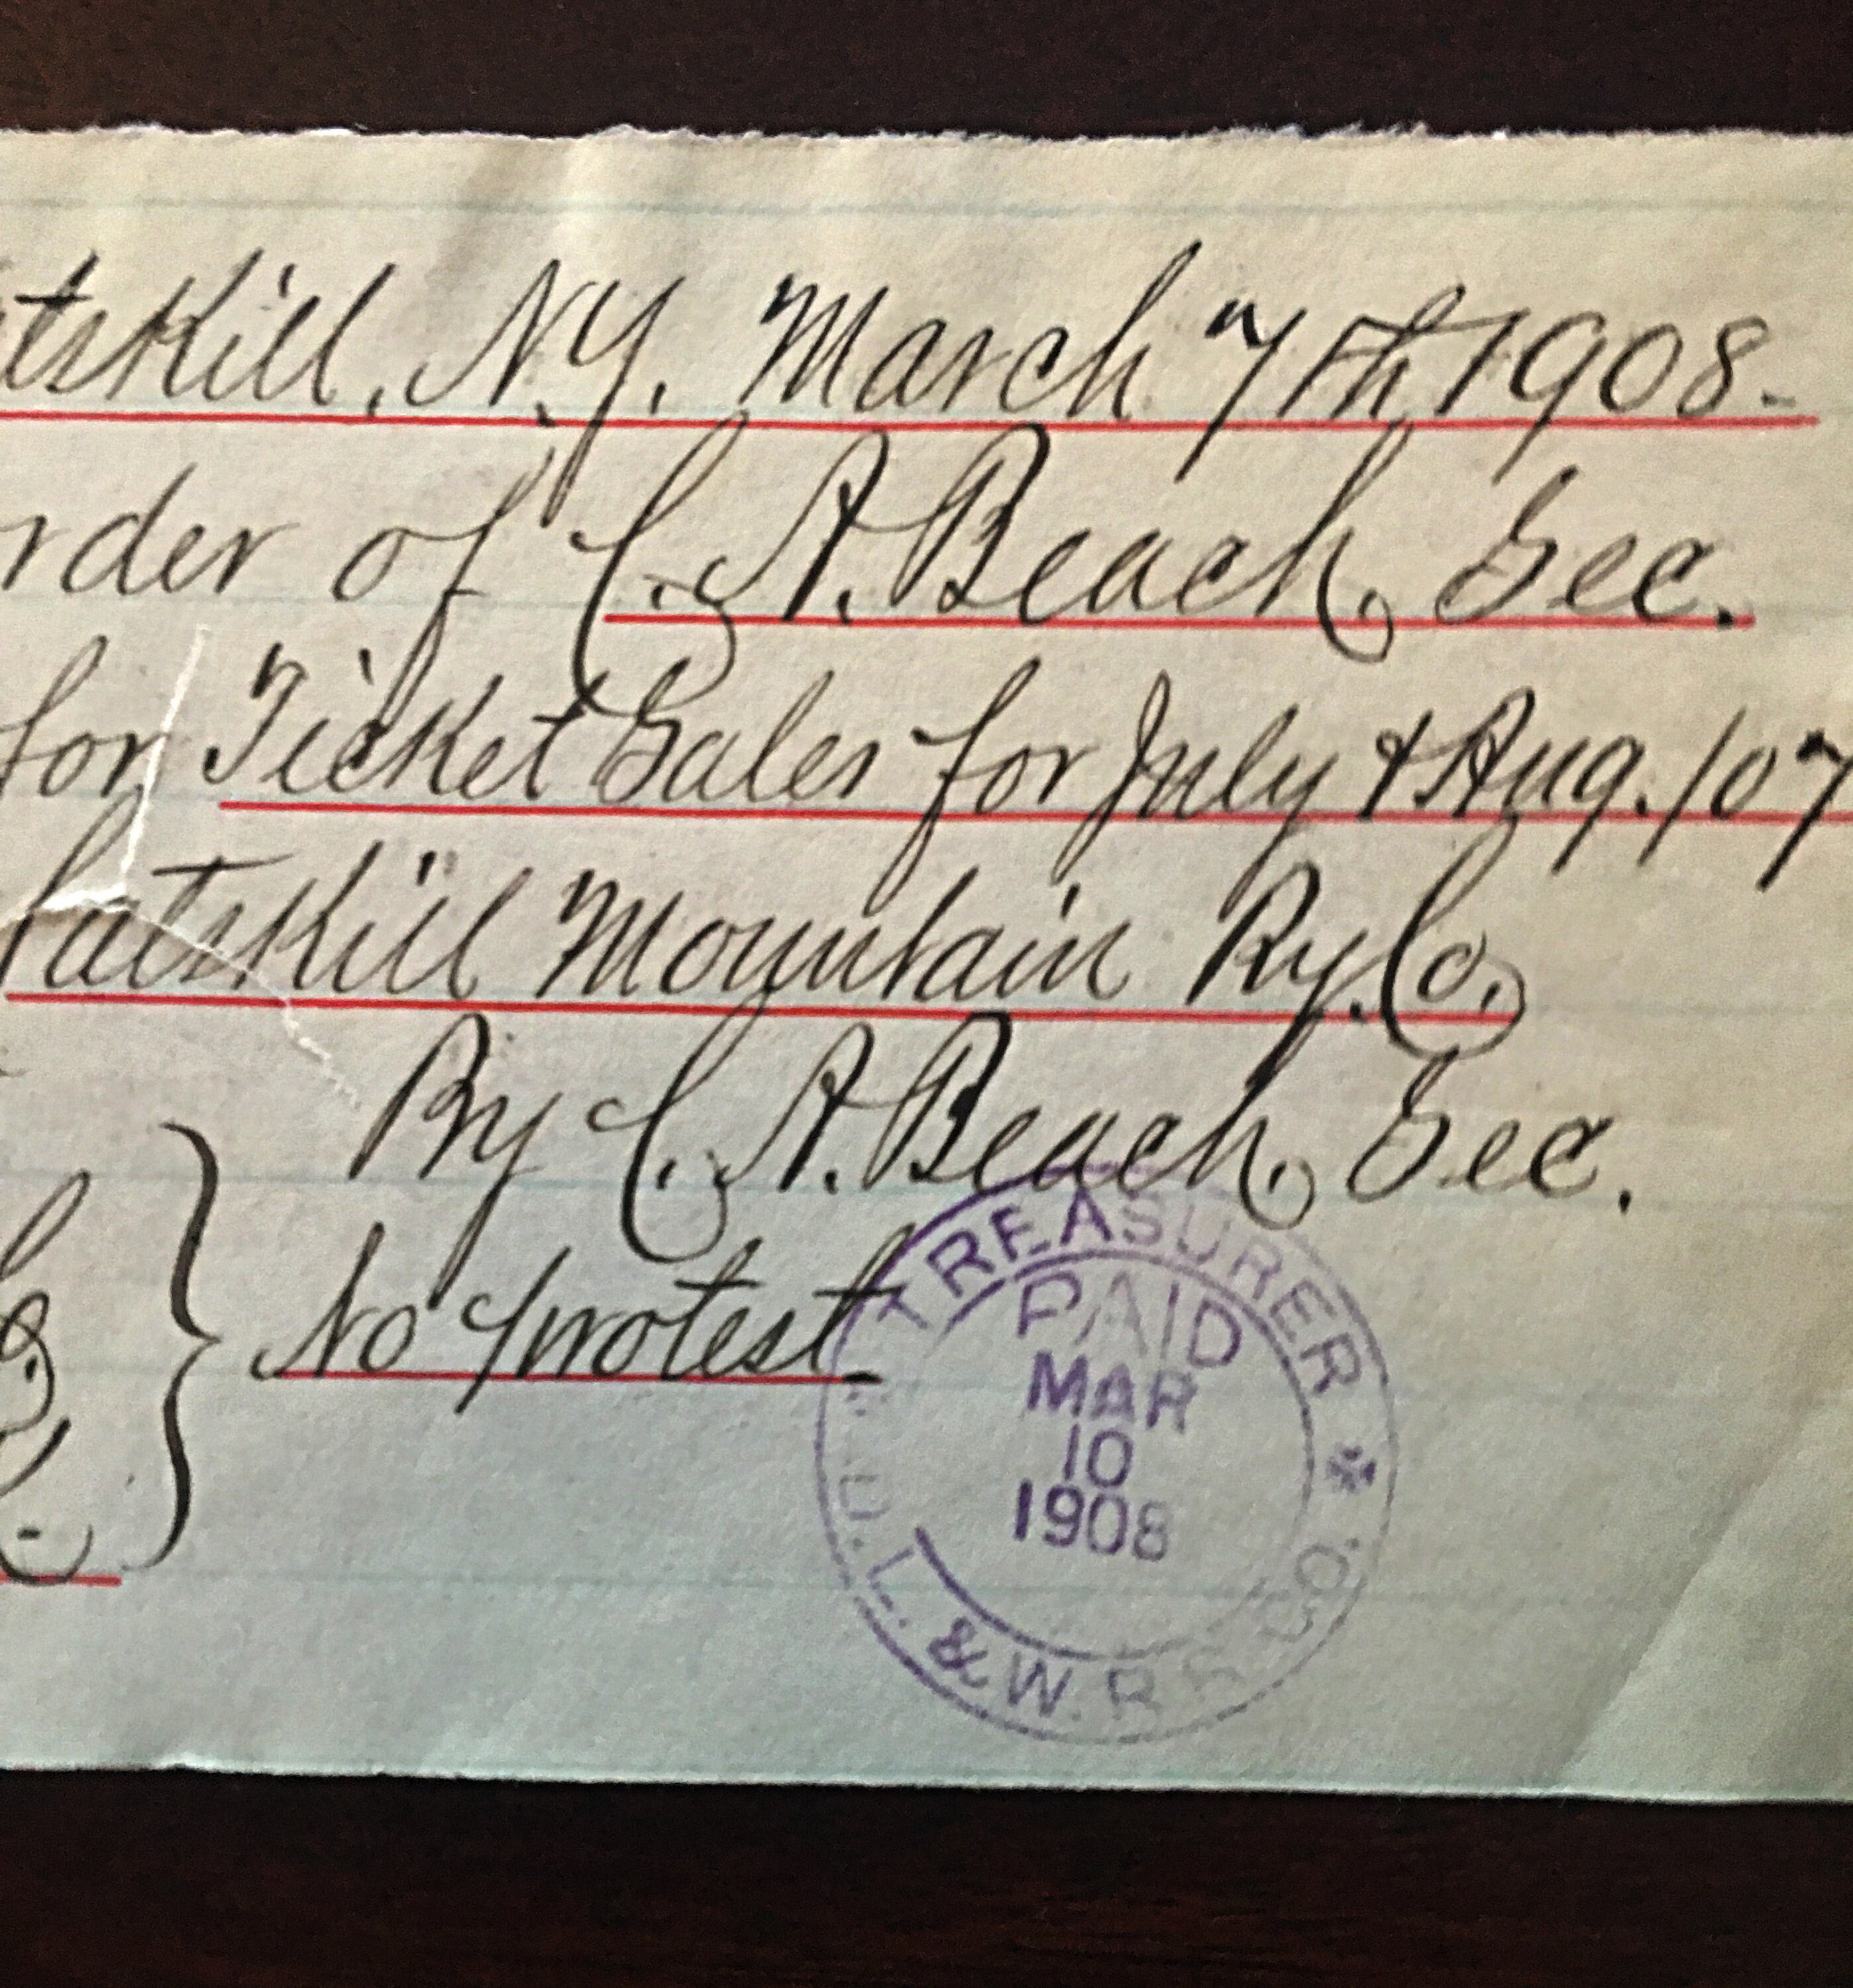 atskill, N.Y. March 7th 1908.
order of C. A. Beach, Sec.
for Ticket Sales for July & Aug. /07
Catskill Mountain Ry. Co.
By C. A. Beach, Sec.
No protest
TREASURER
PAID
MAR
10
1908
D. L. & W. R. R. CO.